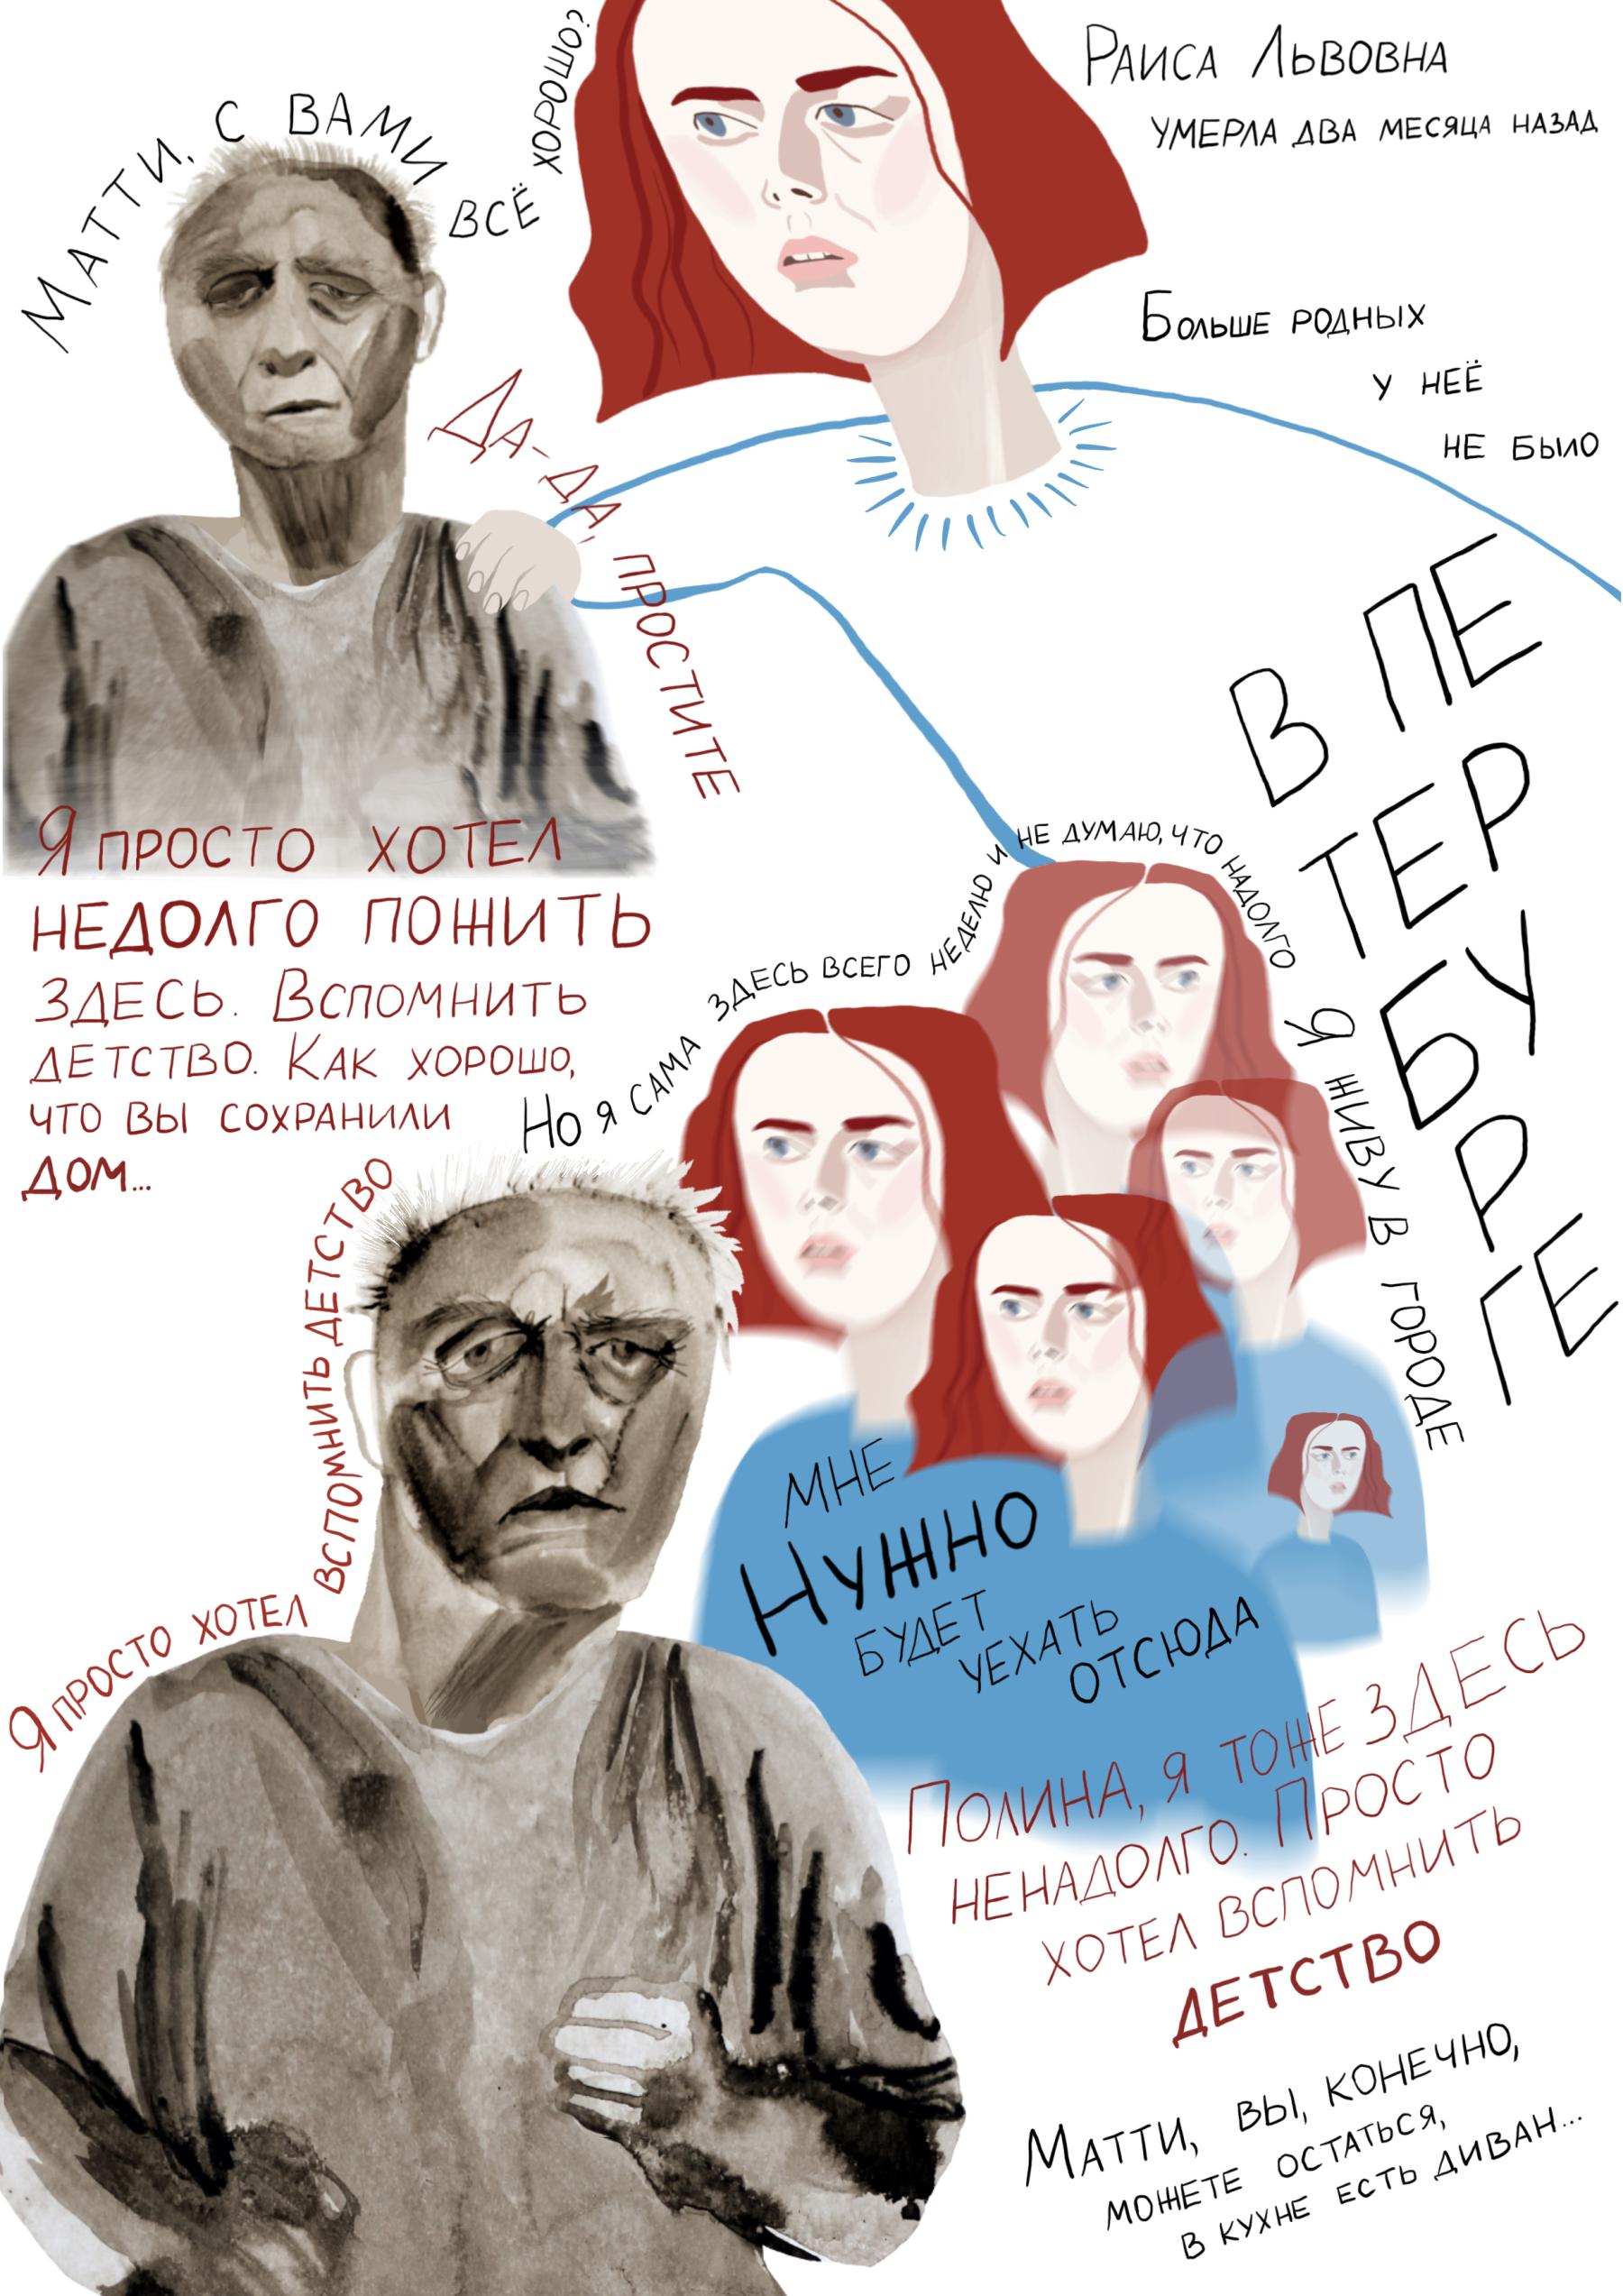 Раиса Львовна
умерла два месяца назад
Матти, с вами всё хорошо?
Больше родных
у неё
не было
Да-да, простите
Я просто хотел
недолго пожить
здесь. Вспомнить
детство. Как хорошо,
что вы сохранили
дом...
Но я сама здесь всего неделю и не думаю, что надолго
Я живу в городе
В ПЕ
ТЕР
БУ
Р
ГЕ
Мне
нужно
будет
уехать
отсюда
Я просто хотел вспомнить детство
Полина, я тоже здесь
ненадолго. Просто
хотел вспомнить
детство
Матти, вы, конечно,
можете остаться,
в кухне есть диван...